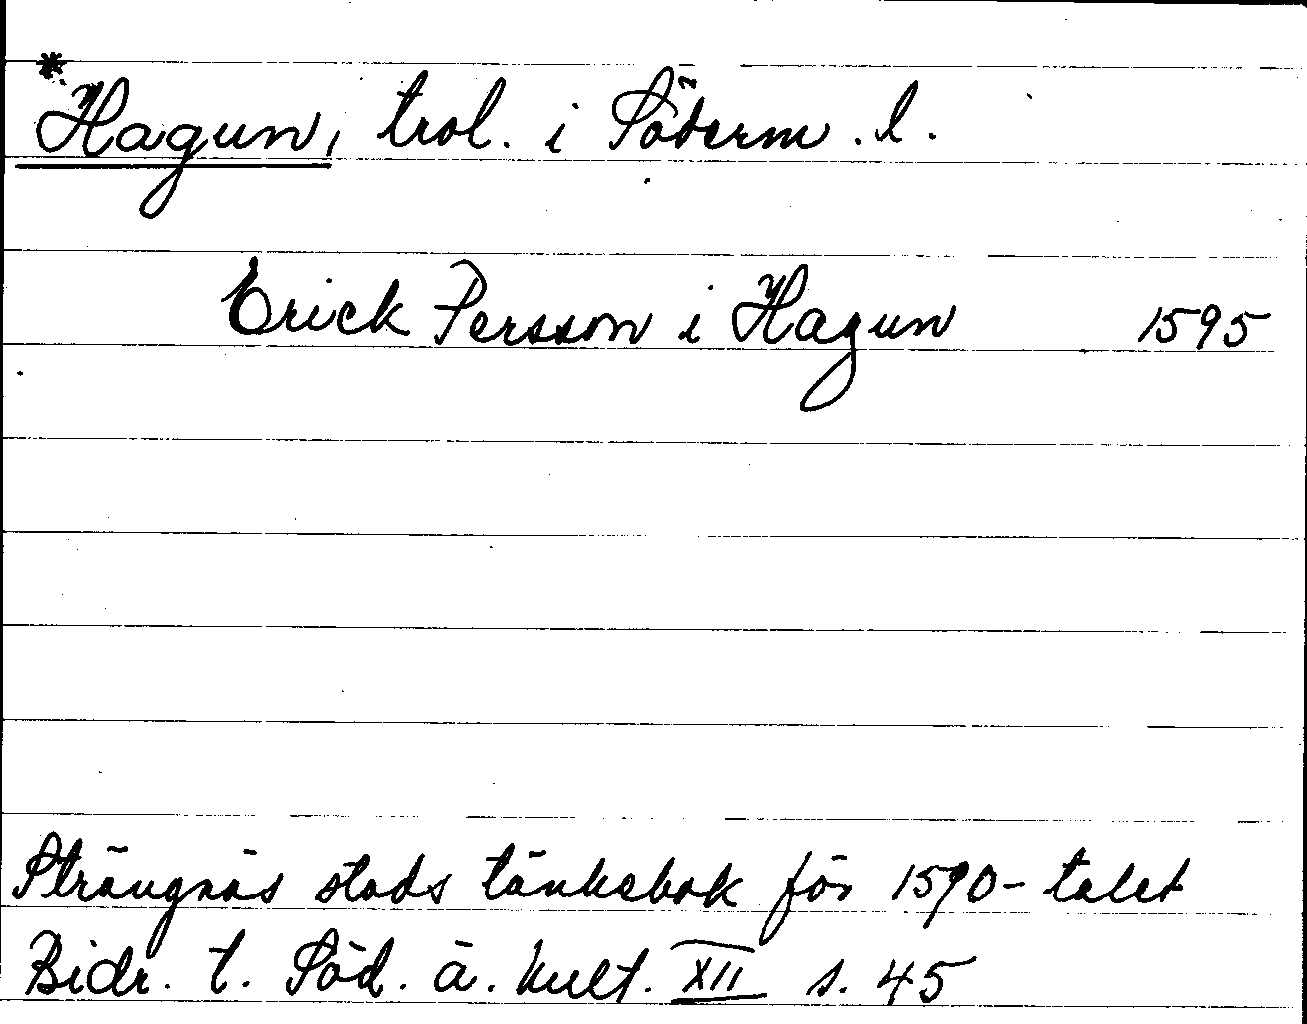 *Hagun, trol. i Söderm. l.
Erick Persson i Hagun 1595
Strängnäs stads tänkebok för 1590-talet
Bidr. t. Söd. ä. kult. XII s. 45